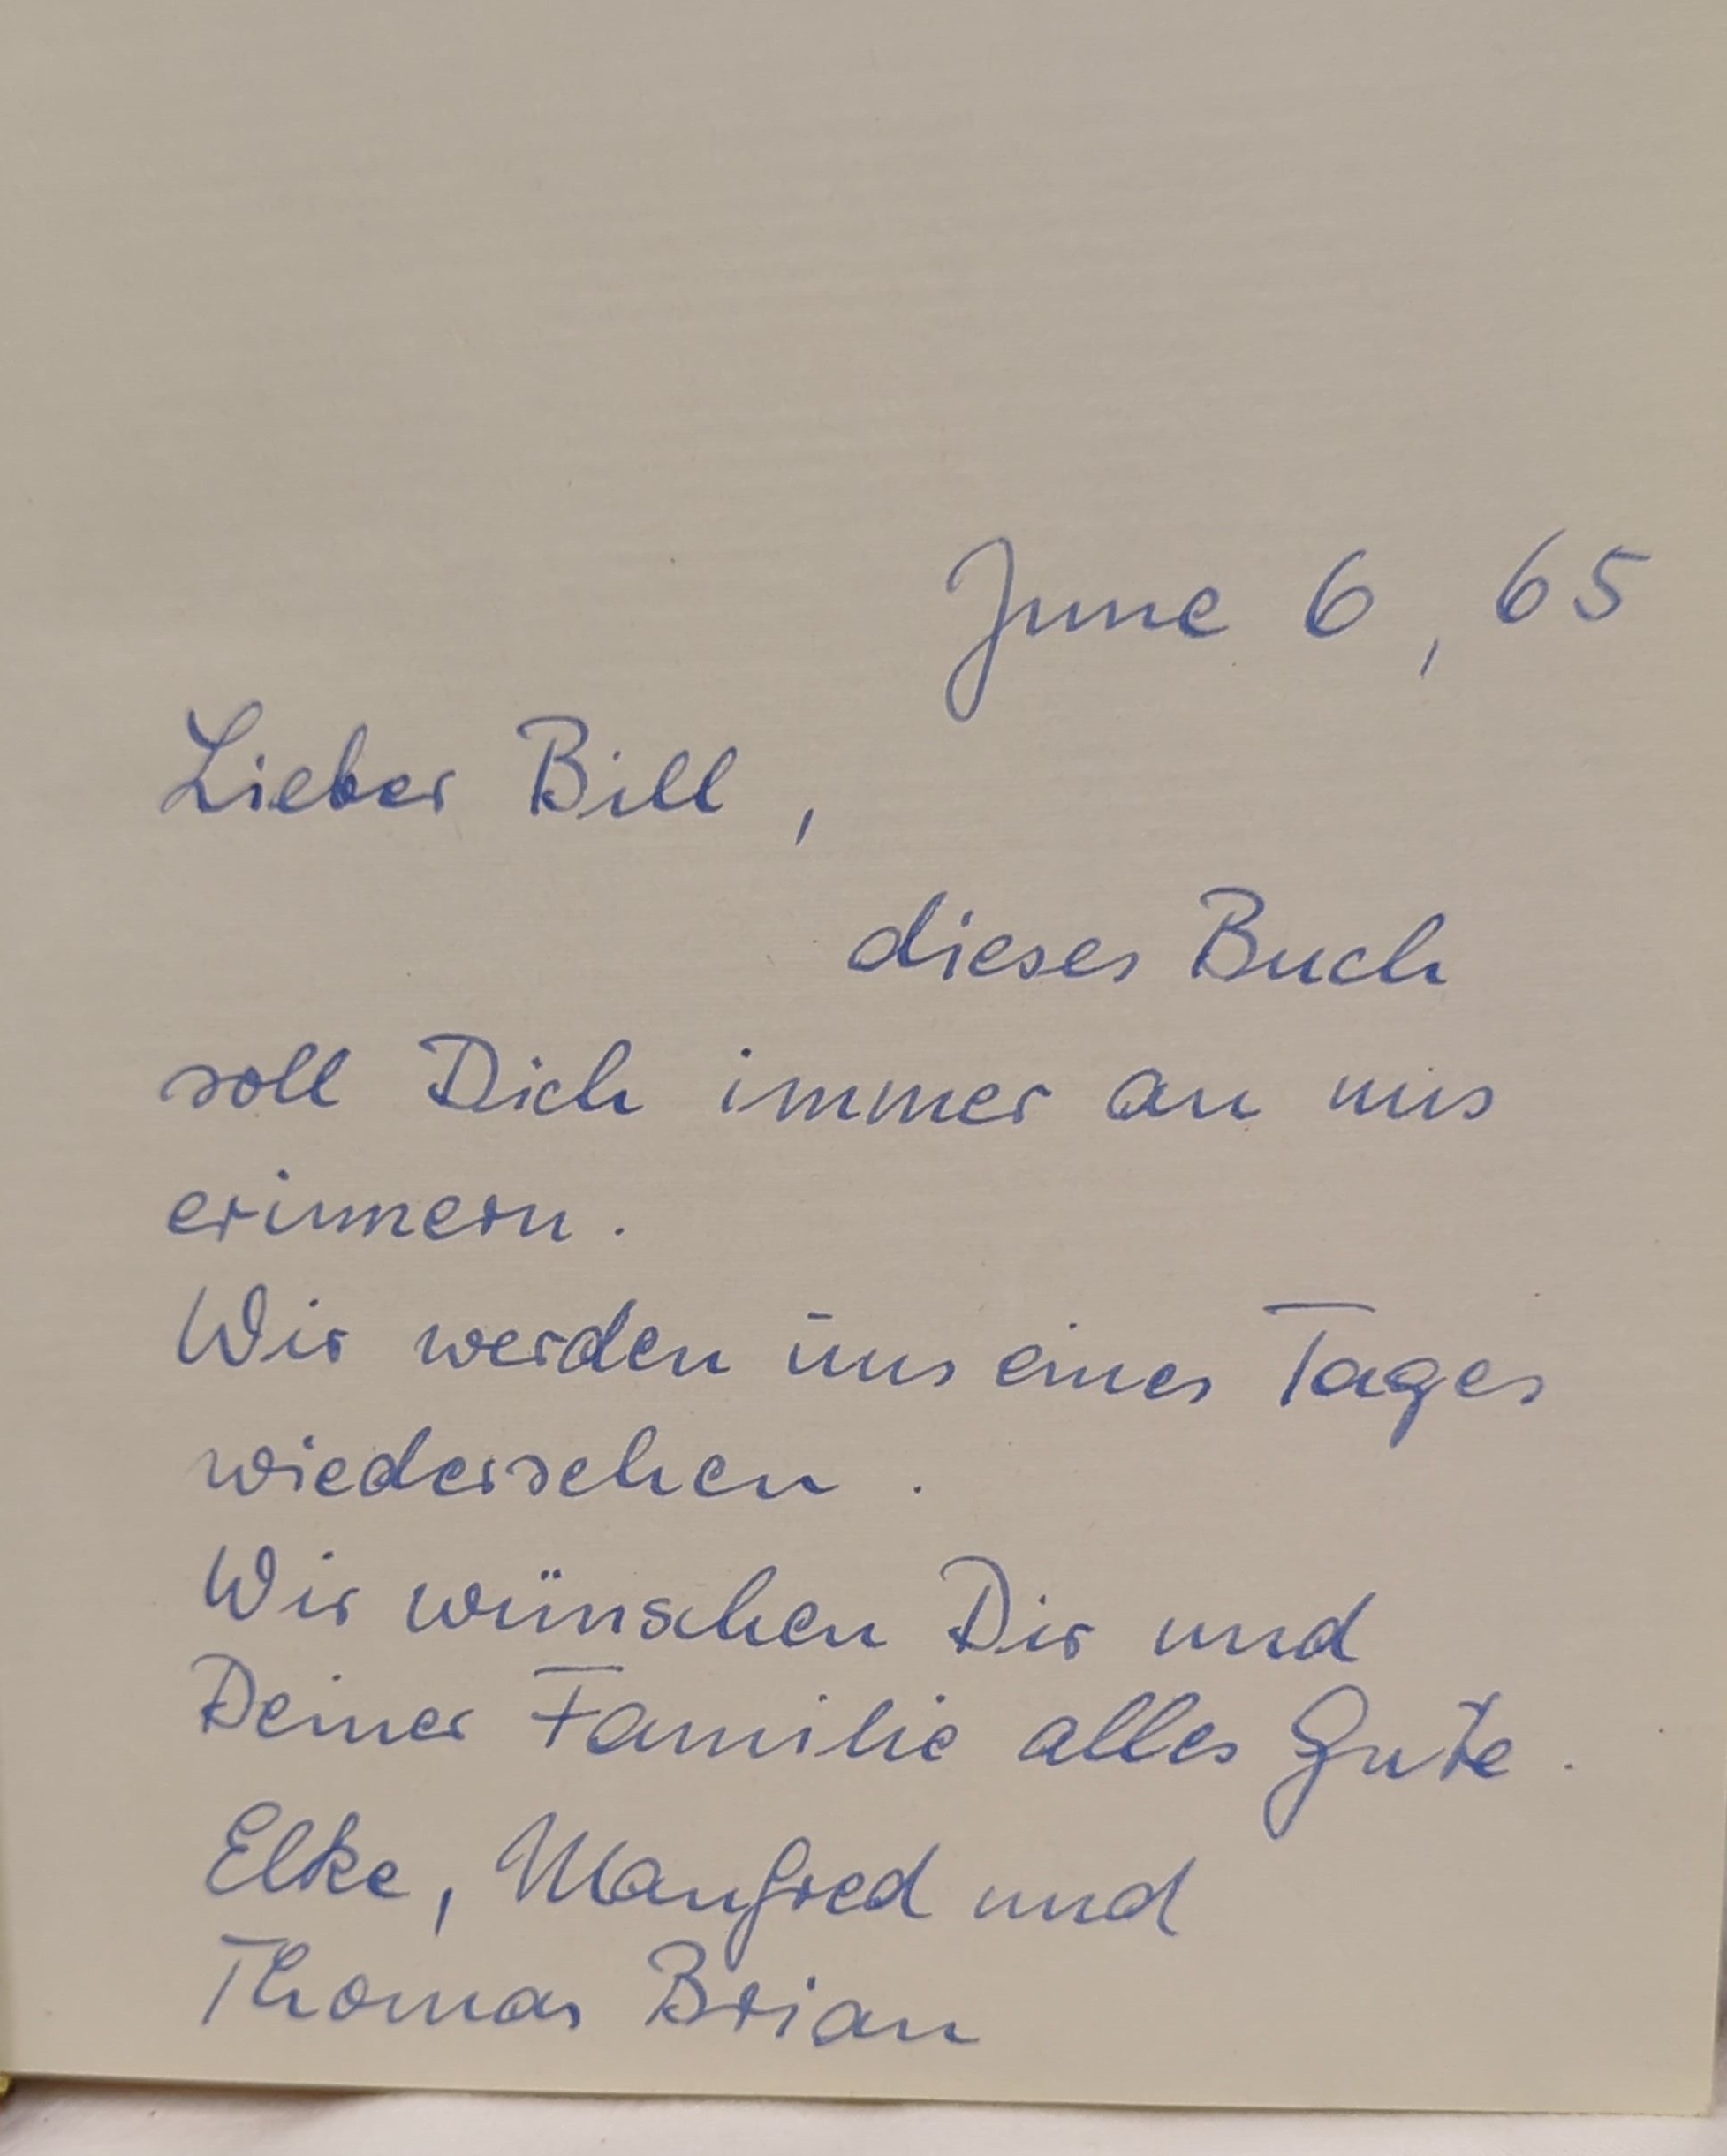 June 6, 65
Lieber Bill,
dieses Buch
soll Dich immer an uns
erinnern.
Wir werden uns eines Tages
wiedersehen.
Wir wünschen Dir und
Deiner Familie alles Gute.
Elke, Manfred und
Thomas Brian